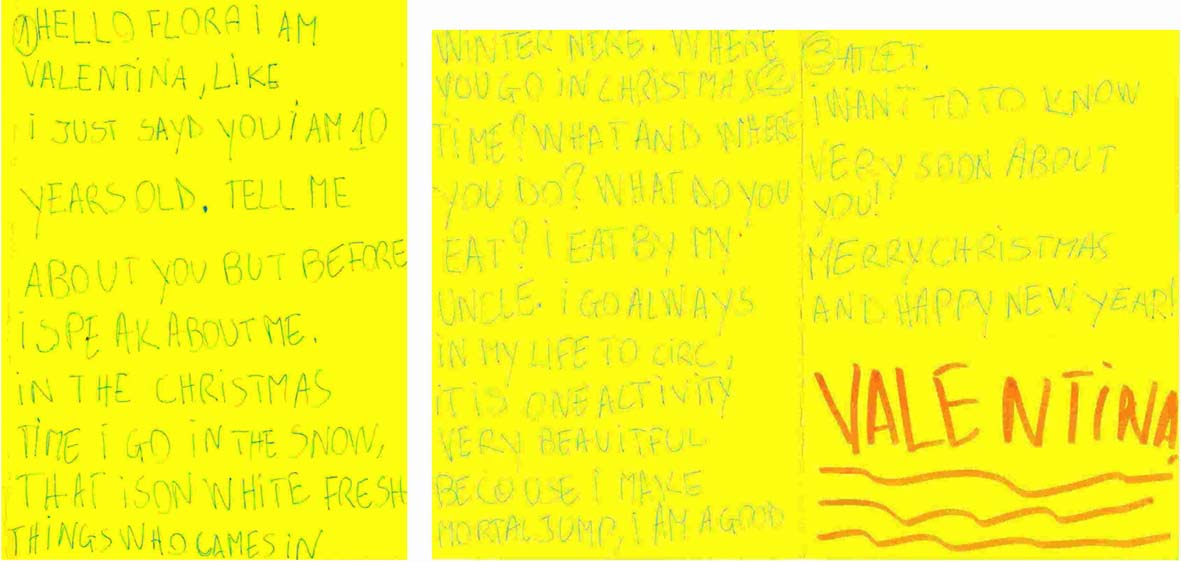 ① HELLO FLORA i AM
VALENTINA, LIKE
i JUST SAYD YOU i AM 10
YEARS OLD. TELL ME
ABOUT YOU BUT BEFORE
i SPEAK ABOUT ME.
iN THE CHRISTMAS
TiME i GO iN THE SNOW,
THAT iS ON WHiTE FRESH
THiNGS WHO CAMES iN
WiNTER HERE. WHERE
YOU GO iN CHRISTMAS ②
TiME? WHAT AND WHERE
YOU DO? WHAT DO YOU
EAT? i EAT BY MY
UNCLE. i GO ALWAYS
iN MY LiFE TO CiRC,
iT iS ONE ACTiViTY
VERY BEAUiTFUL
BECOUSE i MAKE
MORTAL JUMP, i AM A GOOD
③ ATLET.
i WANT TO TO KNOW
VERY SOON ABOUT
YOU!
MERRY CHRiSTMAS
AND HAPPY NEW YEAR!
VALENTiNA